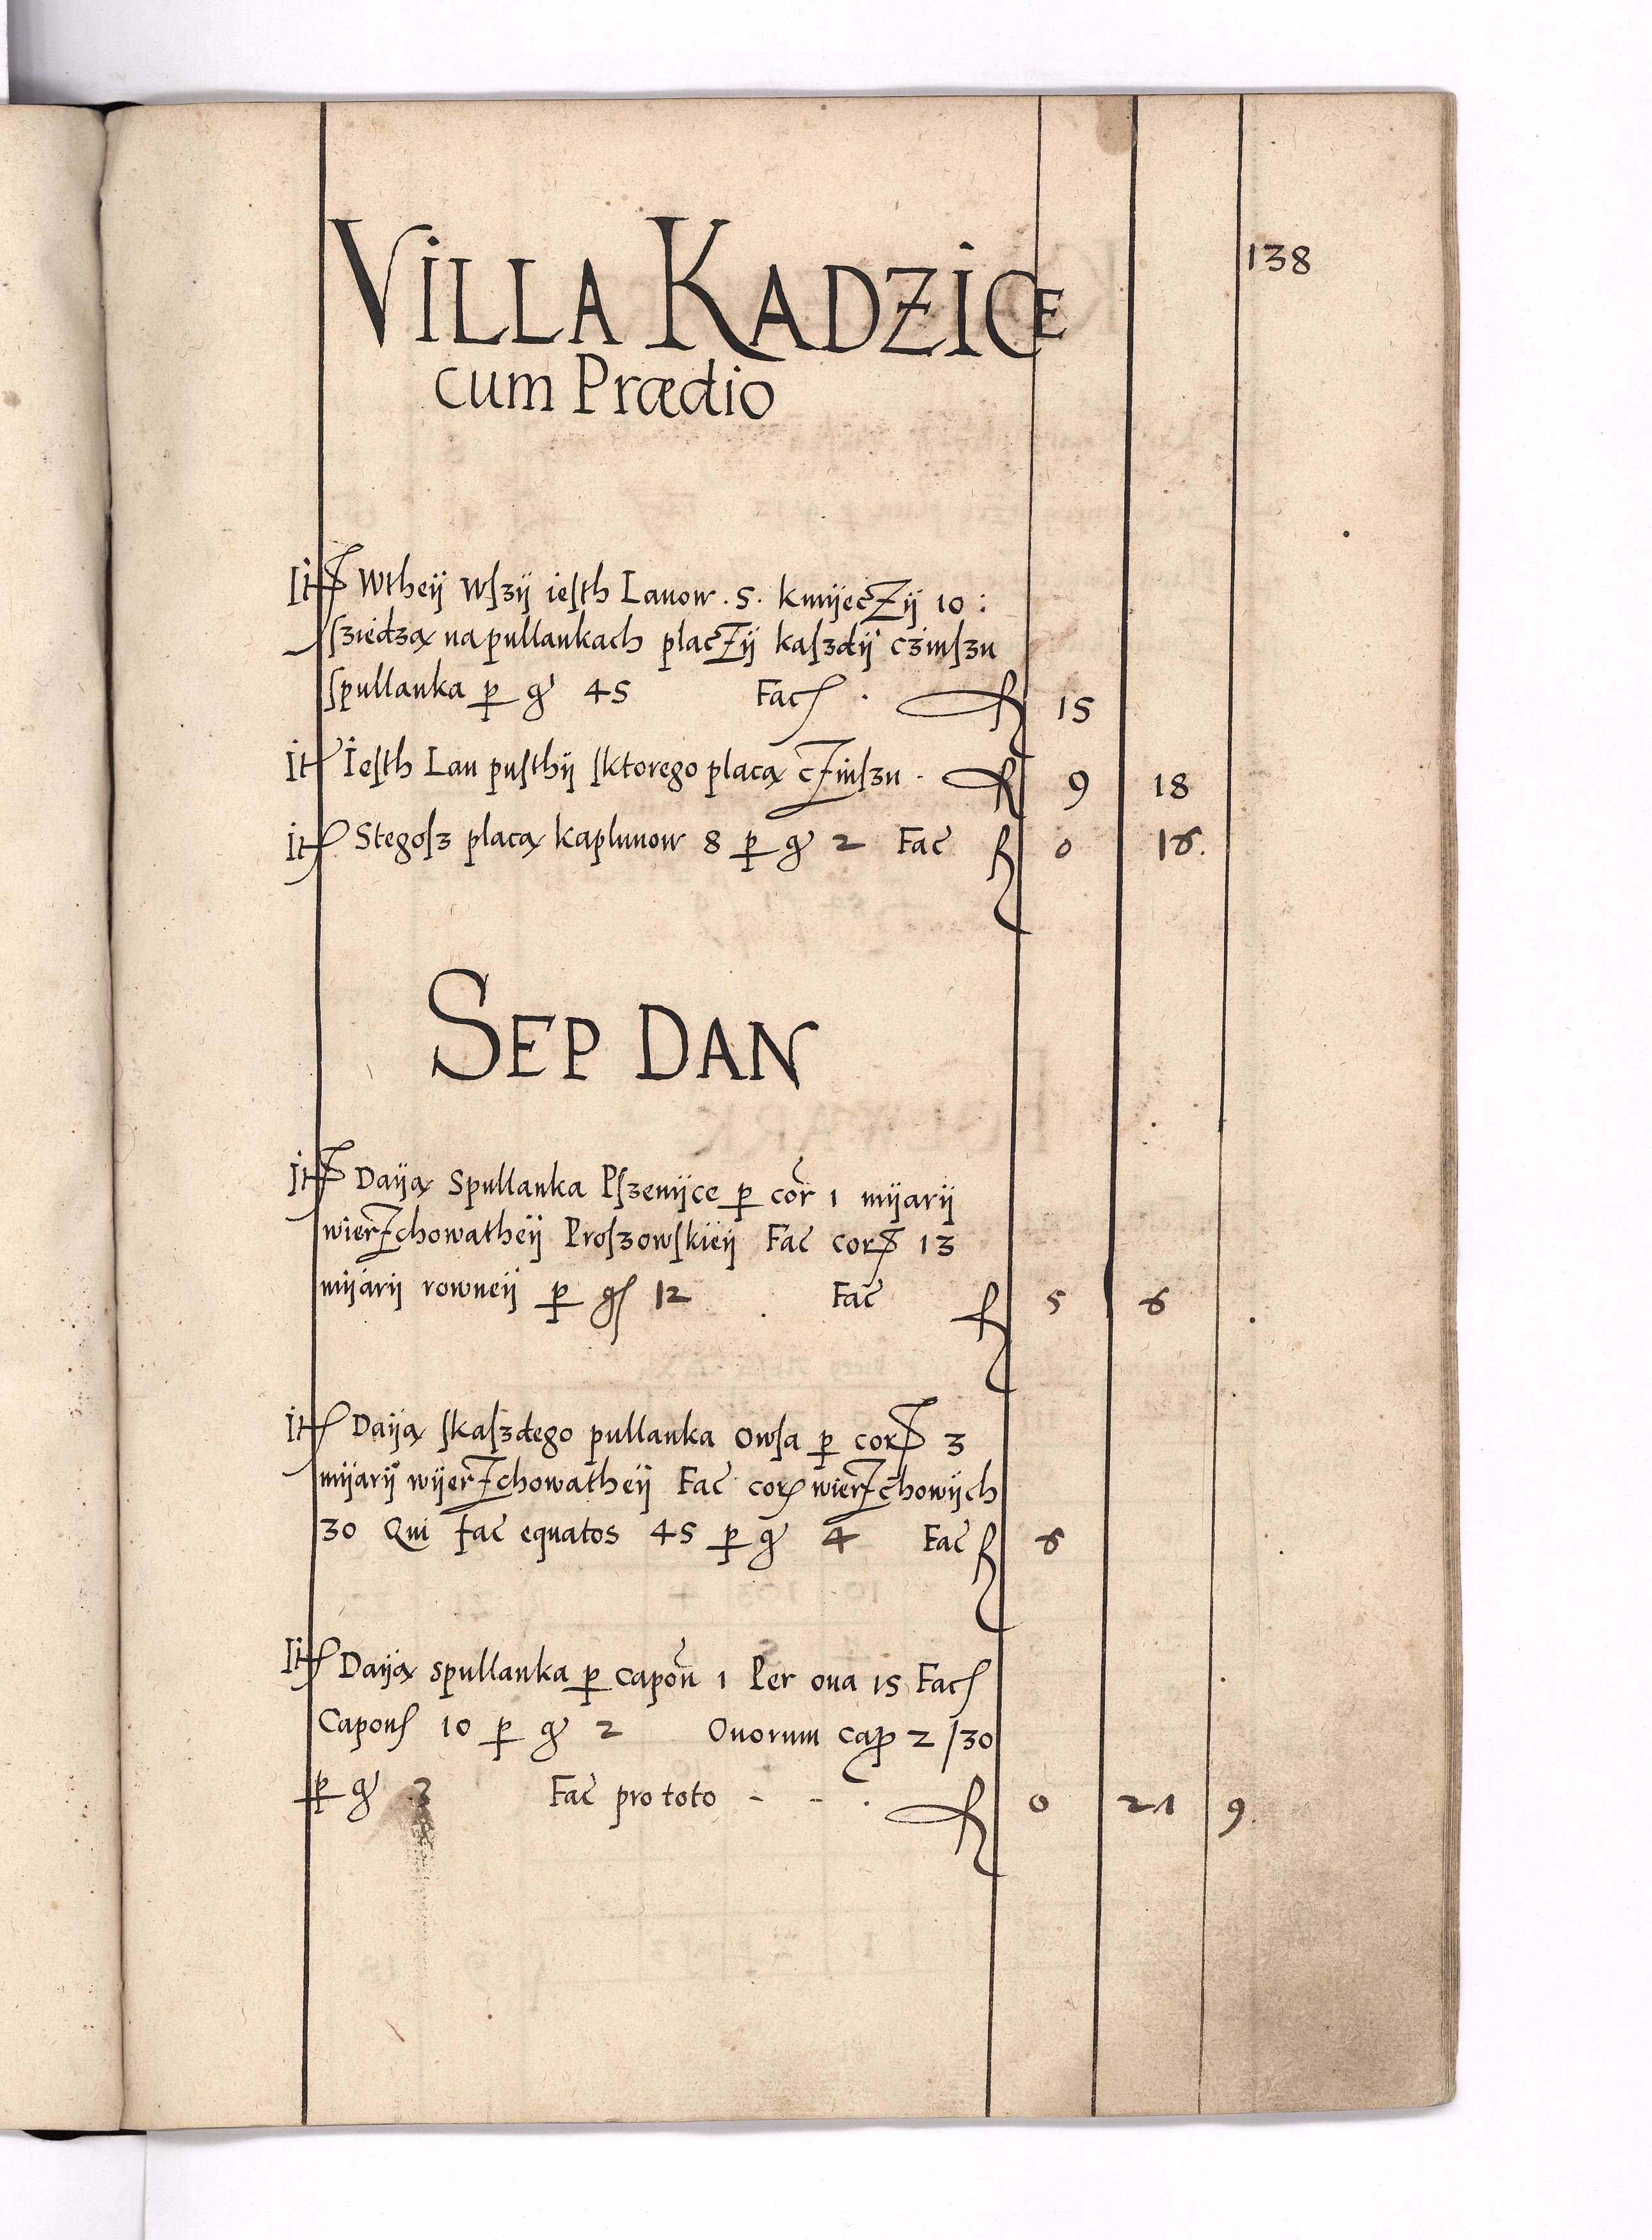 138
VILLA KADZICE
cum Prædio
It Wtheÿ Wſzÿ ieſth Lanow . 5 . kmÿeczÿ 10 :
ſziedzą na pullankach placzÿ kaſzdÿ czinſzu
ſpullanka p gr 45 Fac . fl 15
It Ieſth Lan puſthÿ ſktorego placą czinſzu . fl 9 18
It Stegoſz placą kaplunow 8 p gr 2 Fac fl 0 16.
SEP DAN
It Daÿą Spullanka Pſzenÿce p cor 1 mÿarÿ
wierzchowatheÿ Proſzowſkieÿ Fac cor 13
mÿarÿ rowneÿ p gr 12 Fac fl 5 6
It Daÿą ſkaſzdego pullanka Owſa p cor 3
mÿarÿ wÿerzchowatheÿ Fac cor wierzchowÿch
30 Qui fac equatos 45 p gr 4 Fac fl 6
It Daÿą spullanka p capon 1 Per oua 15 Fac
Capon 10 p gr 2 Ouorum cap 2 /30
p gr Fac pro toto - - . fl 0 21 9.